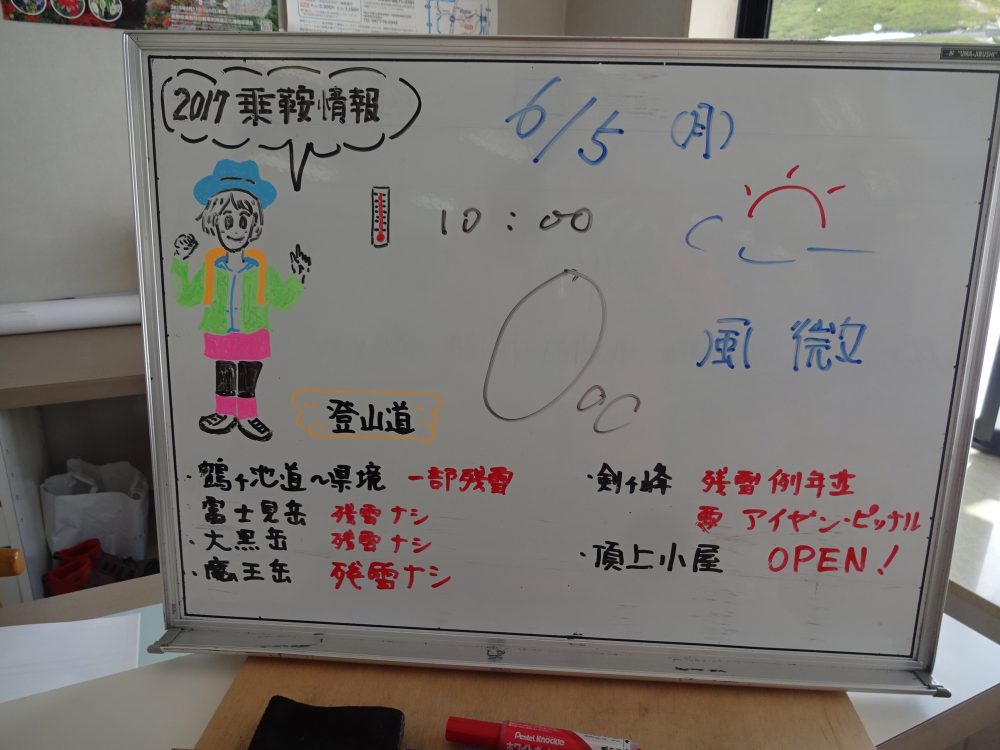 2017 乗鞍情報
6/5 (月)
10:00
0℃
風 微
登山道
・鶴ヶ池道〜県境 一部残雪
富士見岳 残雪ナシ
・大黒岳 残雪ナシ
・魔王岳 残雪ナシ
・剣ヶ峰 残雪例年並
要 アイゼン・ピッケル
・頂上小屋 OPEN!
"UMA-JIRUSHI"
Pentel Knockle